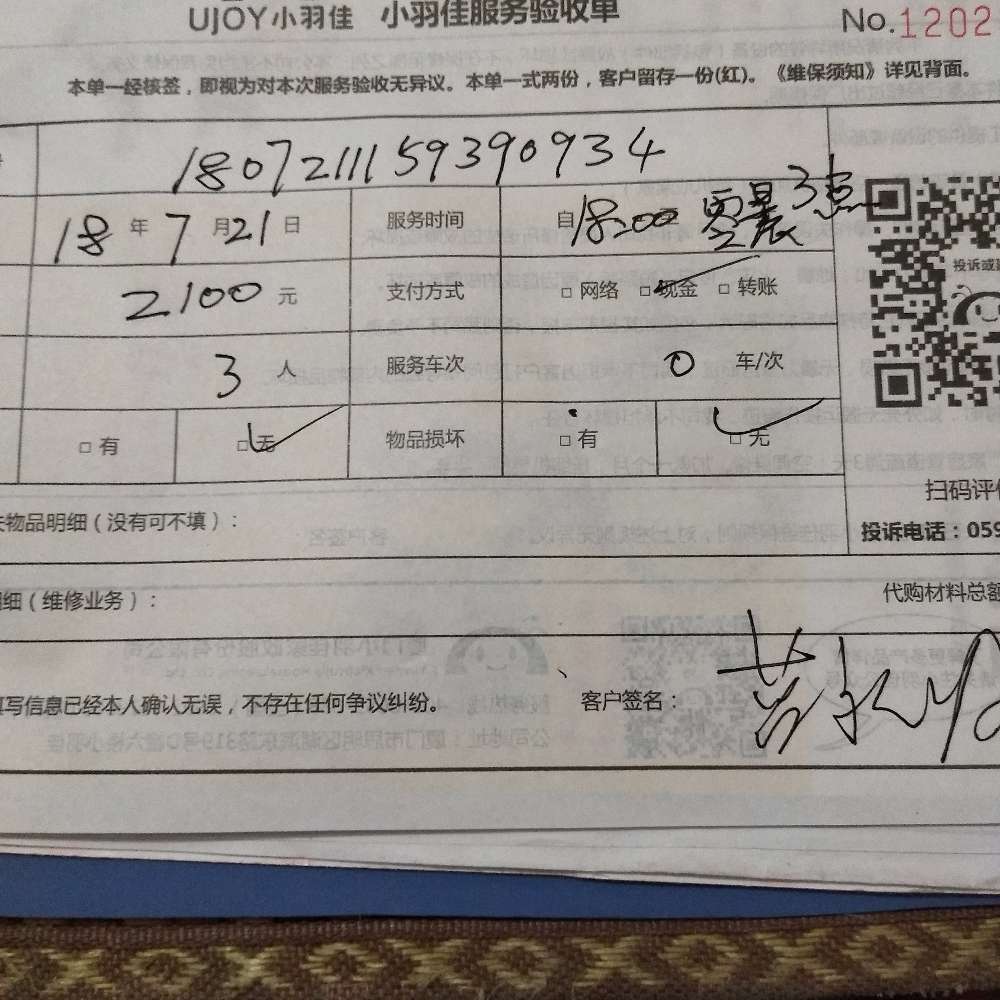 UJOY小羽佳 小羽佳服务验收单
No.1202
本单一经核签，即视为对本次服务验收无异议。本单一式两份，客户留存一份(红)。《维保须知》详见背面。
180721115939 0934
18 年 7 月 21 日 服务时间 自 18:00 至 晨3点
2100 元 支付方式 □ 网络 □ 现金 □ 转账
投诉或
3 人 服务车次 0 车/次
□ 有 □ 无 物品损坏 □ 有 □ 无
扫码评
物品明细（没有可不填）：
投诉电话：059
细（维修业务）：
代购材料总额
写信息已经本人确认无误，不存在任何争议纠纷。 客户签名：